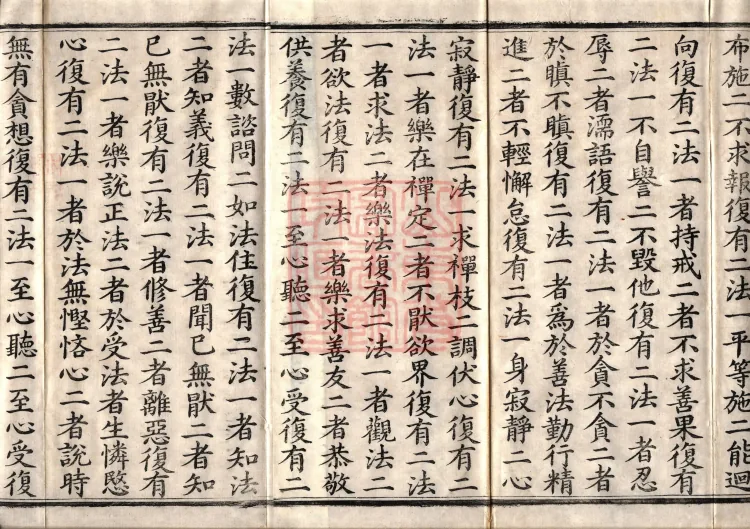 布施二不求報復有二法一平等施二能迴
向復有二法一者持戒二者不求善果復有
二法一不自譽二不毀他復有二法一者忍
辱二者濡語復有二法一者於貪不貪二者
於瞋不瞋復有二法一者為於善法勤行精
進二者不輕懈怠復有二法一身寂靜二心
寂靜復有二法一求禪枝二調伏心復有二
法一者樂在禪定二者不猒欲界復有二法
一者求法二者樂法復有二法一者觀法二
者欲法復有二法一者樂求善友二者恭敬
供養復有二法一至心聽二至心受復有二
法一數諮問二如法住復有二法一者知法
二者知義復有二法一者聞已無猒二者知
已無猒復有二法一者修善二者離惡復有
二法一者樂說正法二者於受法者生憐愍
心復有二法一者於法無慳悋心二者說時
無有貪想復有二法一至心聽二至心受復